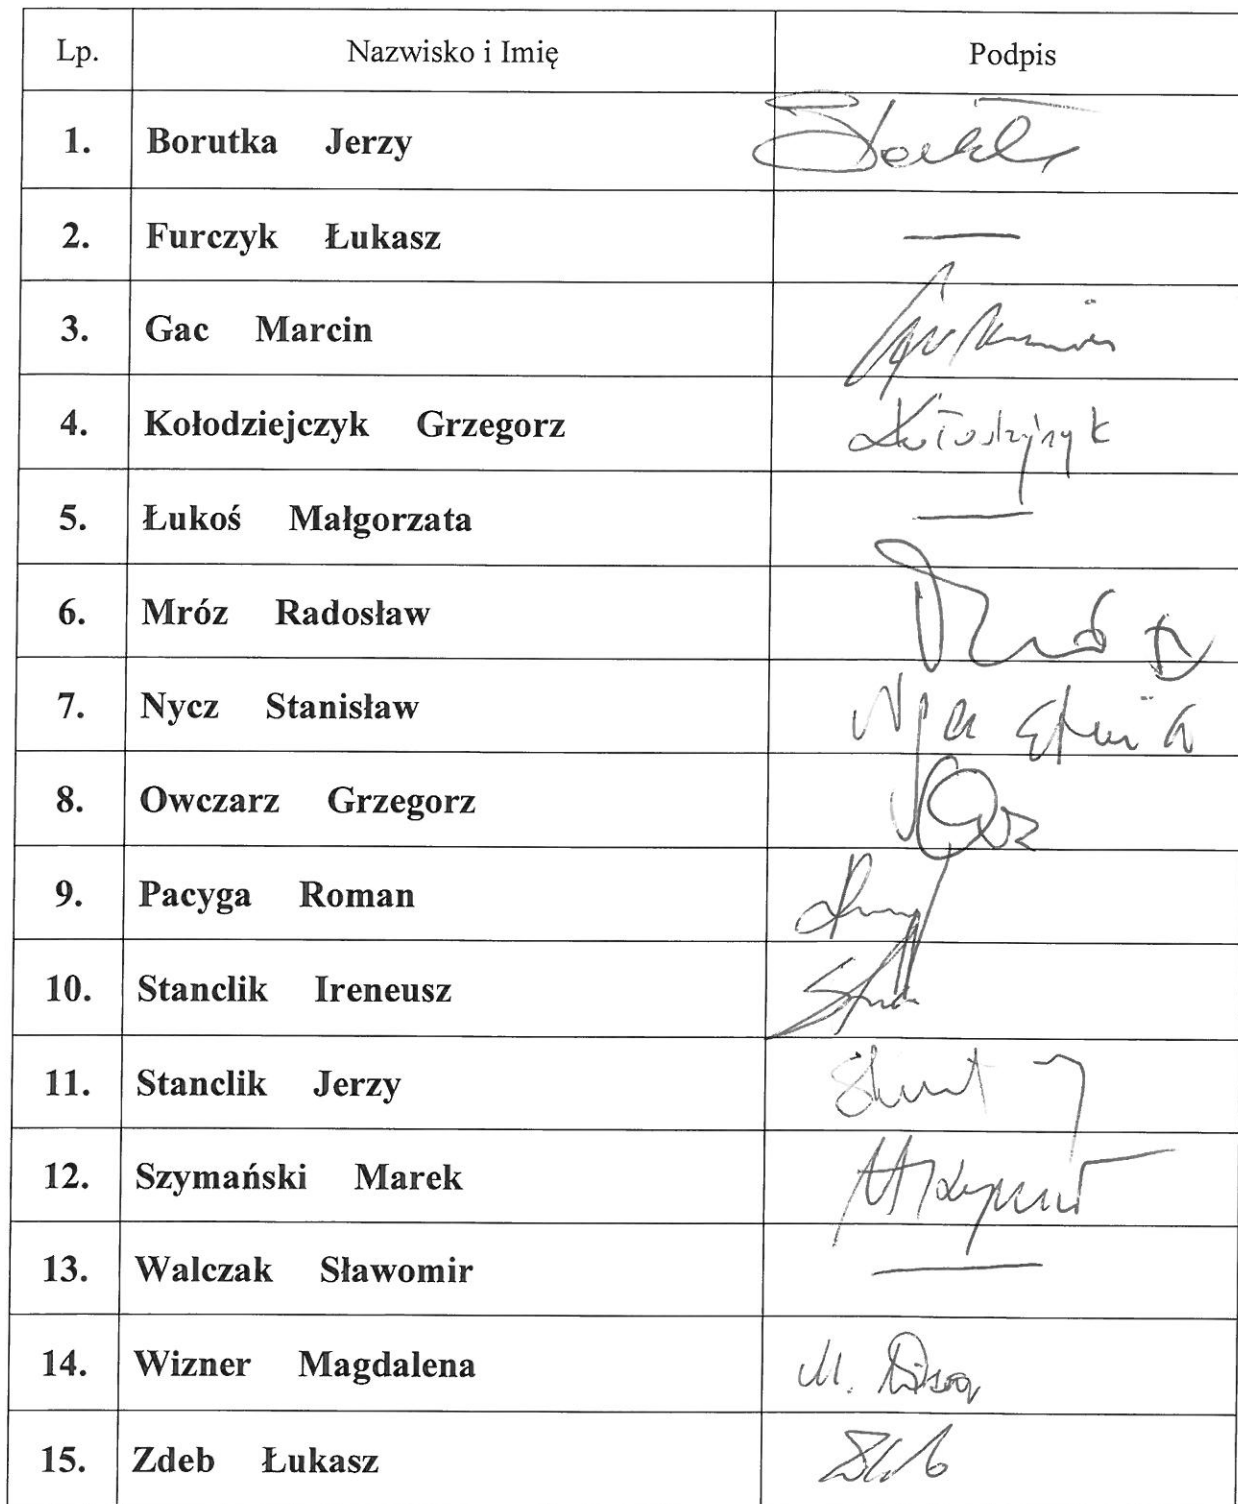 Lp. Nazwisko i Imię Podpis
1. Borutka Jerzy
2. Furczyk Łukasz —
3. Gac Marcin
4. Kołodziejczyk Grzegorz
5. Łukoś Małgorzata —
6. Mróz Radosław
7. Nycz Stanisław
8. Owczarz Grzegorz
9. Pacyga Roman
10. Stanclik Ireneusz
11. Stanclik Jerzy
12. Szymański Marek
13. Walczak Sławomir —
14. Wizner Magdalena
15. Zdeb Łukasz